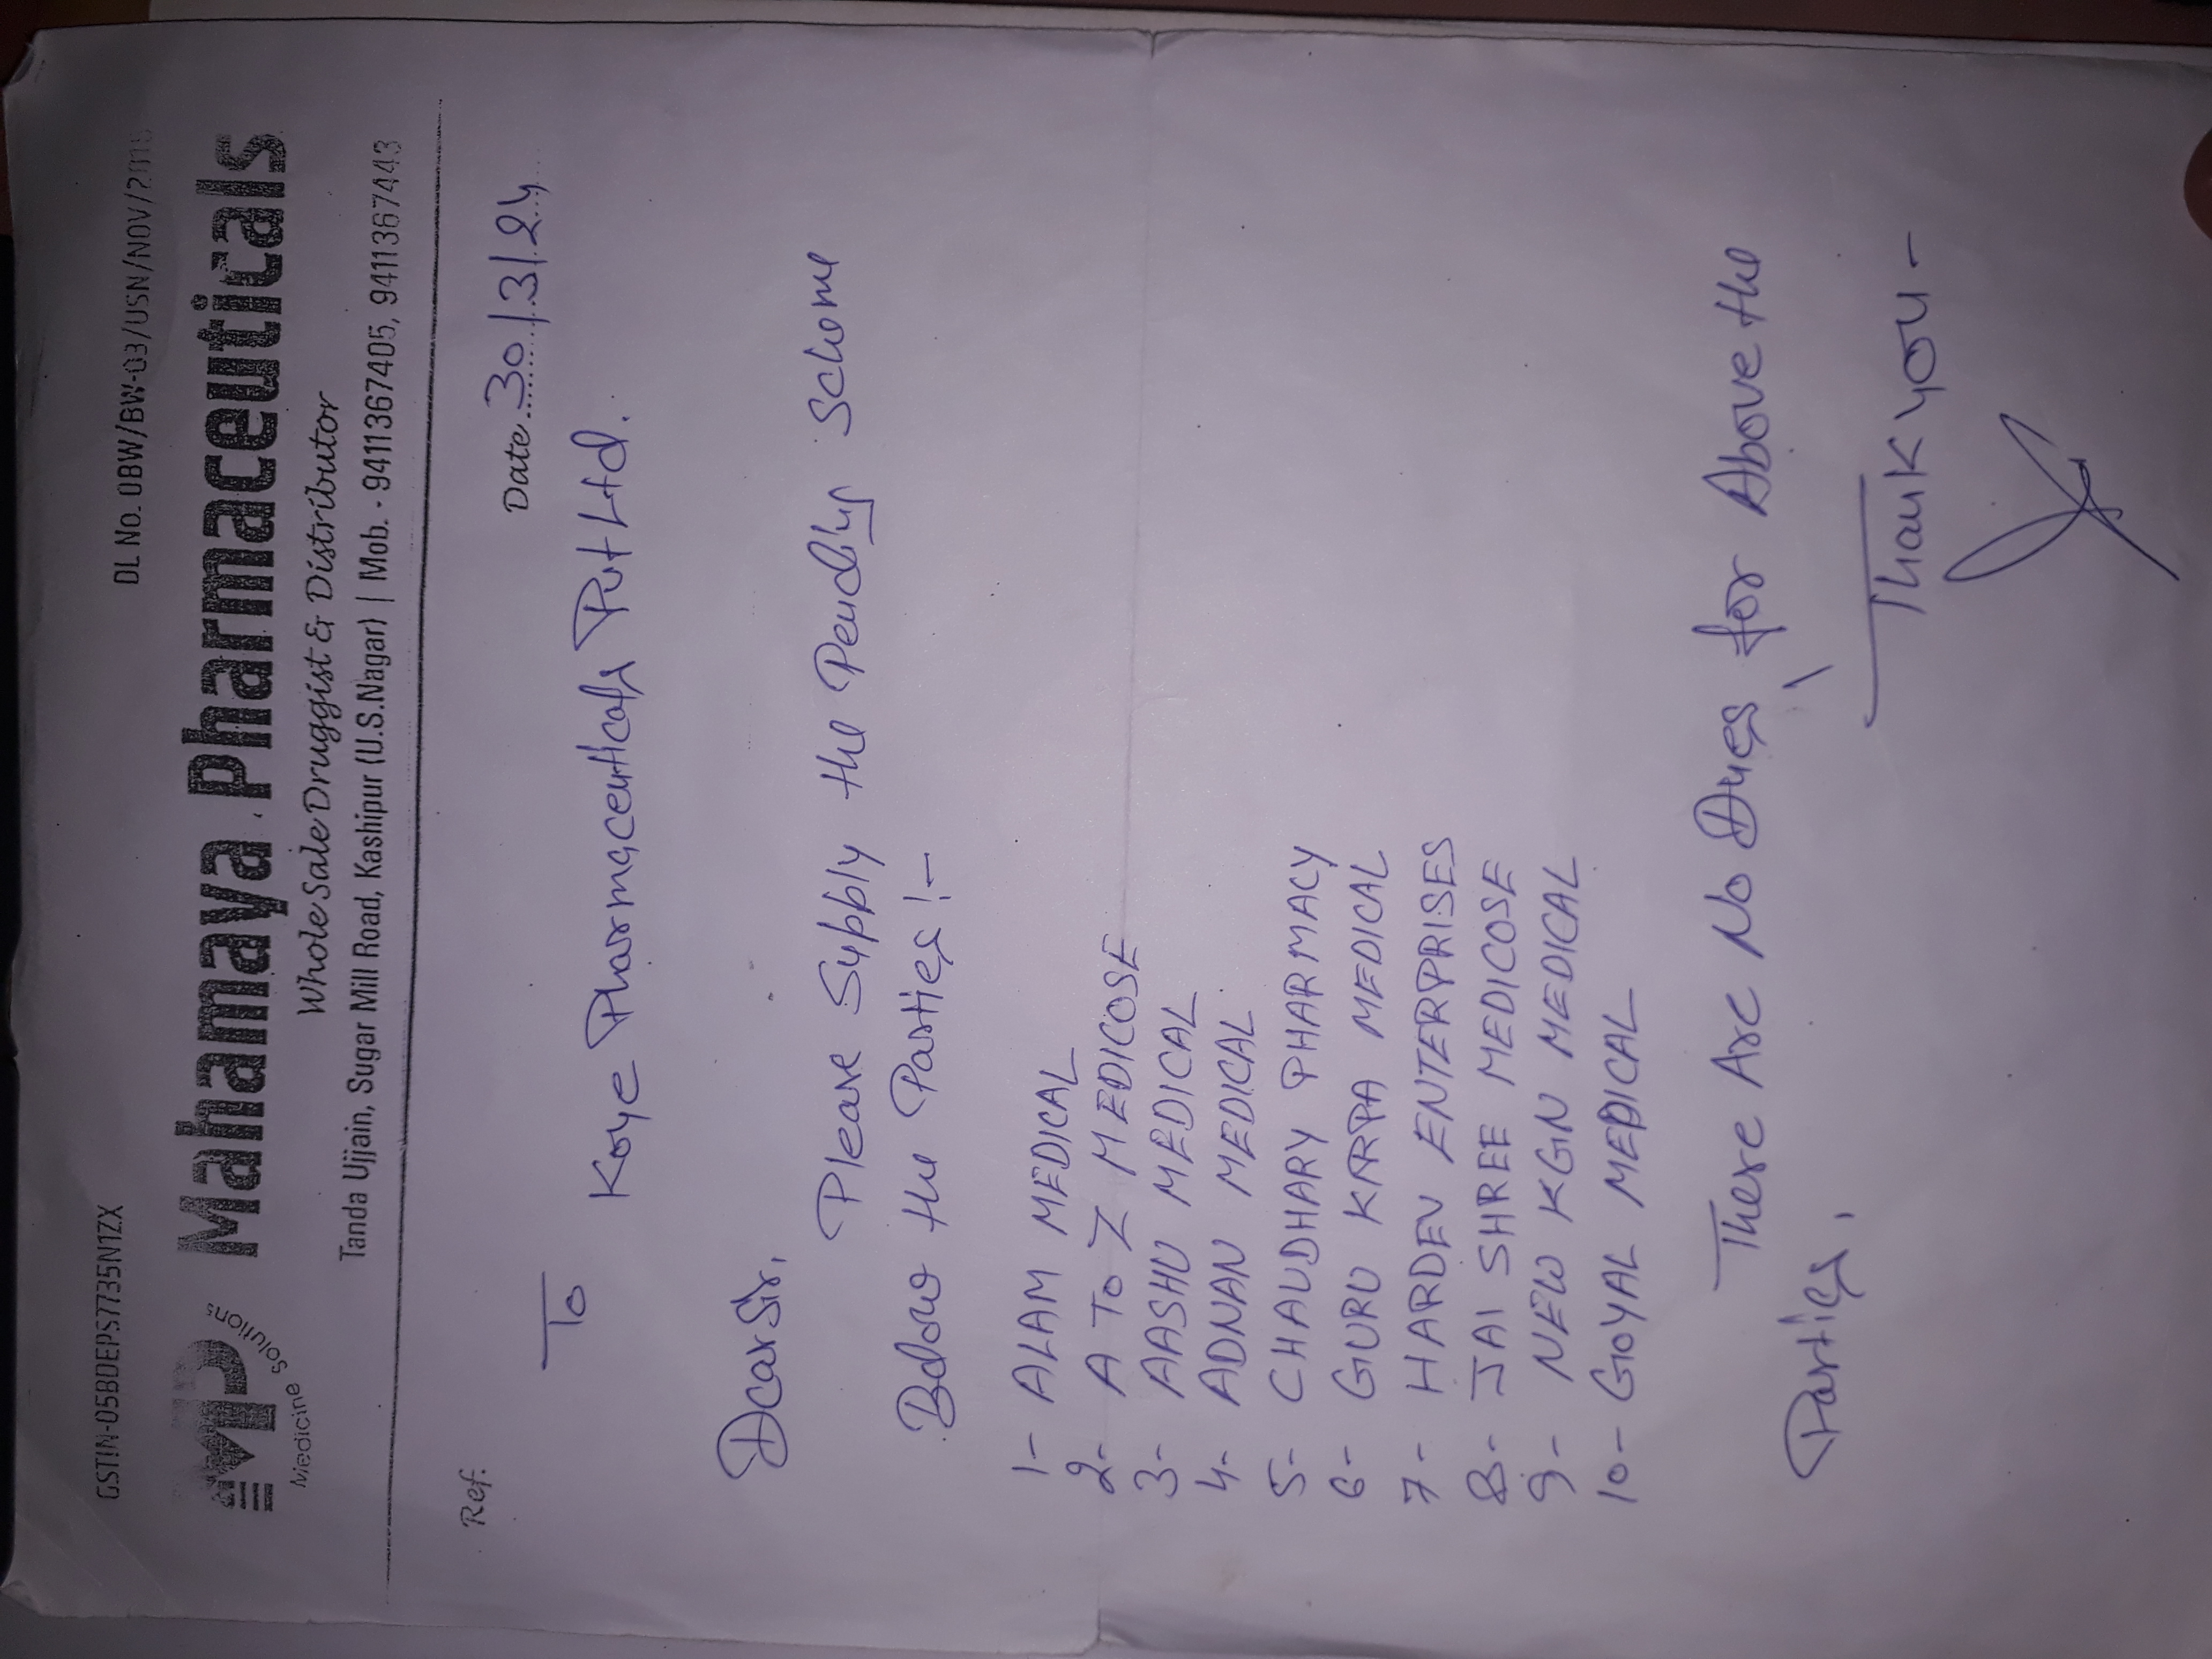 GSTIN-05BDEPS7735N1ZX DL No. OBW/BW-03/USN/NOV/2015
MP Medicine Solutions
Mahamaya Pharmaceuticals
Whole Sale Druggist & Distributor
Tanda Ujjain, Sugar Mill Road, Kashipur (U.S.Nagar) | Mob. - 9411367405, 9411367443
Ref. Date 30/3/24
To
Koye Pharmaceuticals Pvt Ltd.
Dear Sir,
Please Supply the Pending Scheme
Below the Parties :-
1- ALAM MEDICAL
2- A To Z MEDICOSE
3- AASHU MEDICAL
4- ADNAN MEDICAL
5- CHAUDHARY PHARMACY
6- GURU KARPA MEDICAL
7- HARDEV ENTERPRISES
8- JAI SHREE MEDICOSE
9- NEW KGN MEDICAL
10- GOYAL MEDICAL
There Are No Dues, for Above the
Parties.
Thank you -